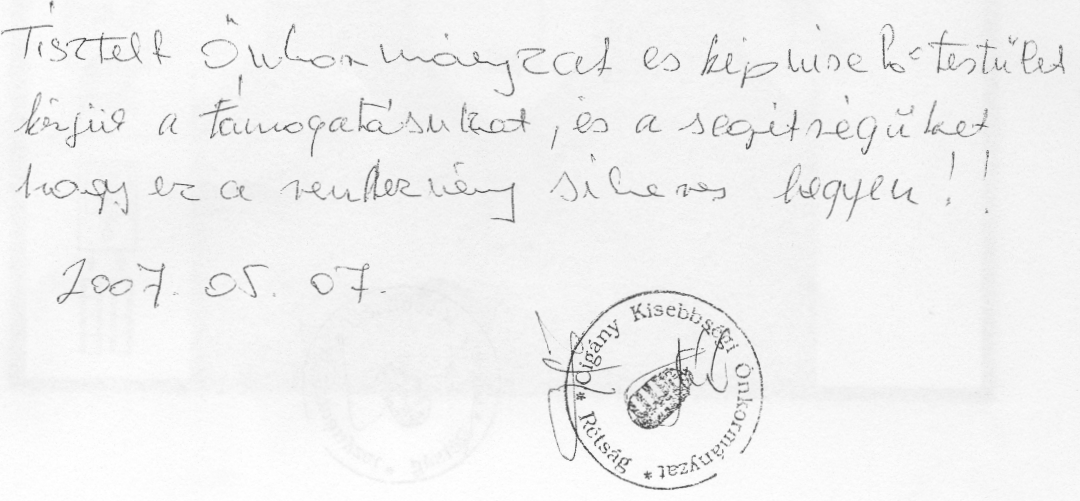 Tisztelt Önkormányzat es képviselő-testület
kérjük a támogatásukat, és a segítségüket
hogy ez a rendezvény sikeres legyen!!
2007. 05. 07.
* Cigány Kisebbségi Önkormányzat * Rétság